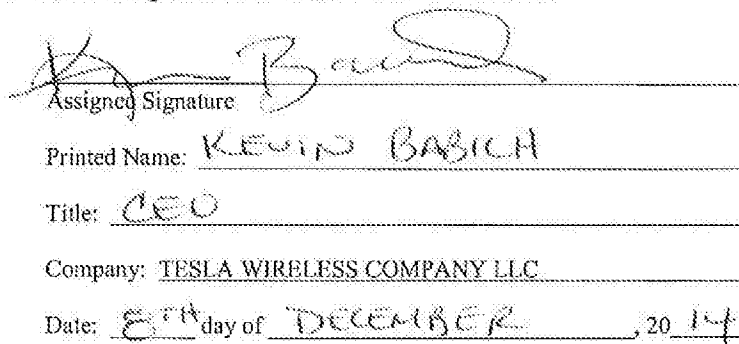 Assigned Signature
Printed Name: KEVIN BABICH
Title: CEO
Company: TESLA WIRELESS COMPANY LLC
Date: 8TH day of DECEMBER, 2014